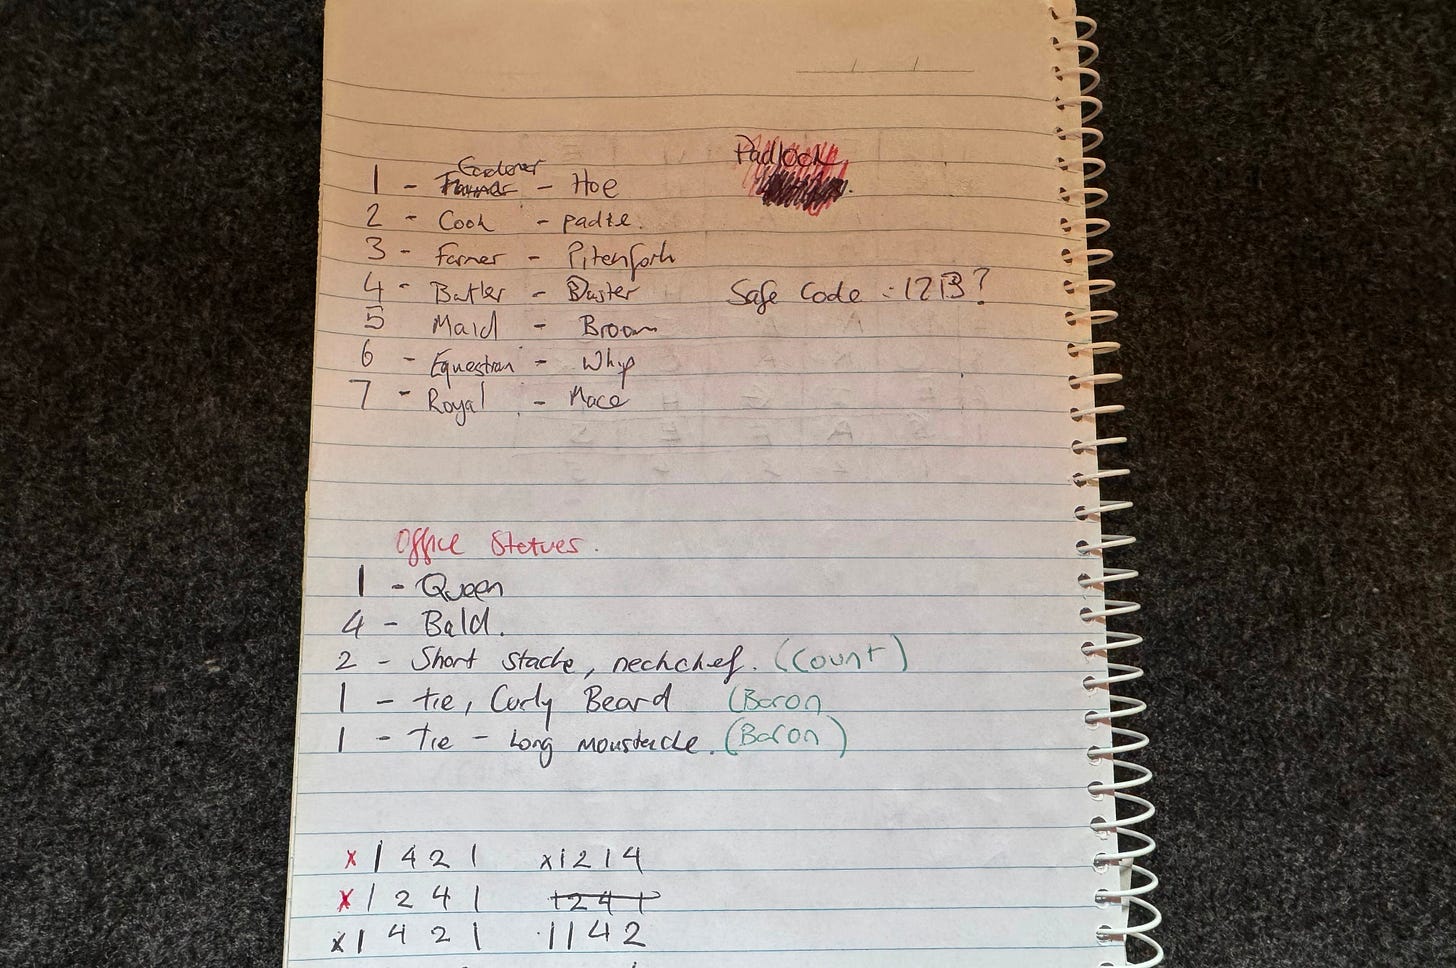 Padlock
Gardener
1 - Farmer - Hoe
2 - Cook - padle.
3 - Farmer - Pitchforh
4 - Butler - Duster
Safe Code : 1213?
5 Maid - Broom
6 - Equestrian - Whip
7 - Royal - Mace
Office Statues.
1 - Queen
4 - Bald.
2 - Short stache, neckchef. (Count)
1 - tie, Curly Beard (Baron
1 - Tie - Long moustache. (Baron)
x 1 4 2 1 x 1 2 1 4
x 1 2 4 1 1 2 4 1
x 1 4 2 1 . 1 1 4 2